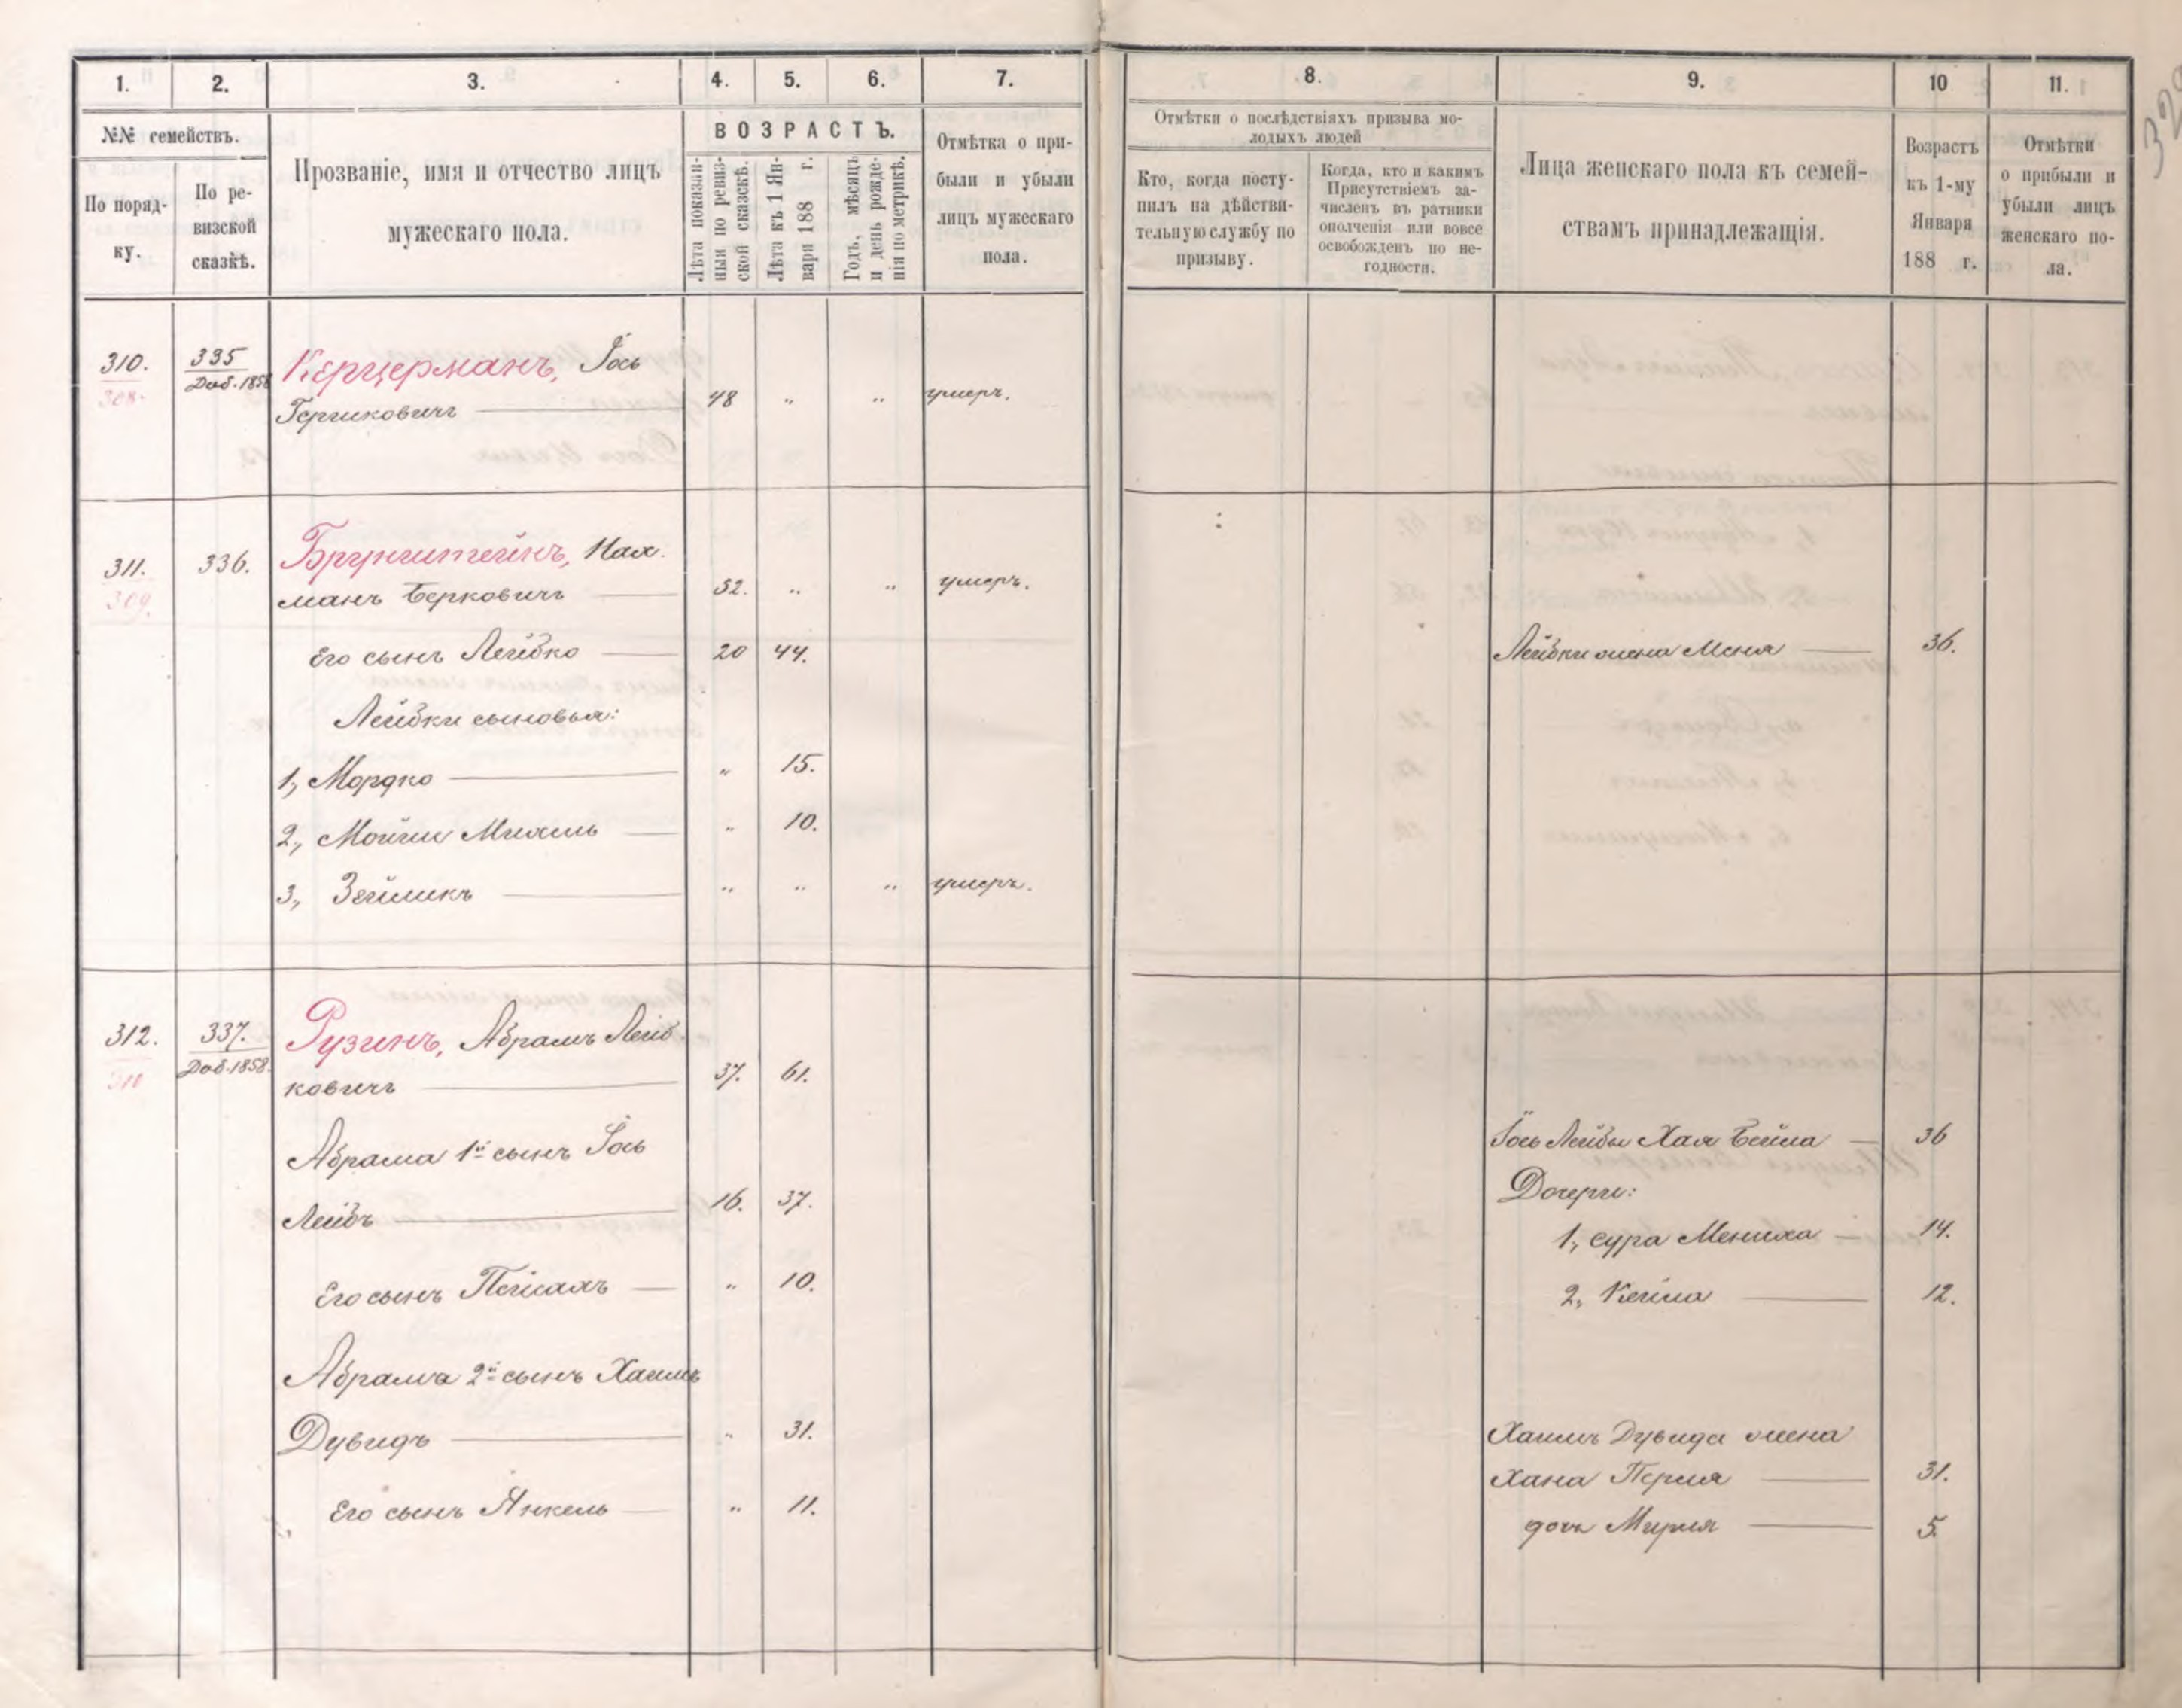 1.
2.
3.
4.
5.
6.
7.
№№ семействъ.
По поряд-
ку.
По ре-
визской
сказкѣ.
Прозваніе, имя и отчество лицъ
мужескаго пола.
ВОЗРАСТЪ.
Лѣта показан-
ныя по ревиз-
ской сказкѣ.
Лѣта къ 1 Ян-
варя 188 г.
Годъ, мѣсяцъ
и день рожде-
нія по метрикѣ.
Отмѣтка о при-
были и убыли
лицъ мужескаго
пола.
310.
308.
335
Доб. 1858
Керцерманъ, Іось
Гершковичъ
48 " " умеръ.
311.
309.
336.
Брунштейнъ, Нах-
манъ Берковичъ 52. " " умеръ.
Его сынъ Лейбко 20 44.
Лейбки сыновья:
1, Мордко " 15.
2, Мойше Михель " 10.
3, Зейликъ " " " умеръ.
312.
310
337.
Доб. 1858.
Рузинъ, Абрамъ Лейб-
ковичъ 37. 61.
Абрама 1й сынъ Іось
Лейбъ 16. 37.
Его сынъ Пейсахъ " 10.
Абрама 2й сынъ Хаимъ
Дувидъ " 31.
Его сынъ Янкель " 11.
8.
9.
10
11.
Отмѣтки о послѣдствіяхъ призыва мо-
лодыхъ людей
Кто, когда посту-
пилъ на дѣйстви-
тельную службу по
призыву.
Когда, кто и какимъ
Присутствіемъ за-
численъ въ ратники
ополченія или вовсе
освобожденъ по не-
годности.
Лица женскаго пола къ семей-
ствамъ принадлежащія.
Возрастъ
къ 1-му
Января
188 г.
Отмѣтки
о прибыли и
убыли лицъ
женскаго по-
ла.
Лейбки жена Меня 36.
Іось Лейбы Хая Бейла 36
Дочери:
1, Сура Мениха 14.
2, Кейла 12.
Хаимъ Дувида жена
Хана Перля 31.
дочь Мирля 5.